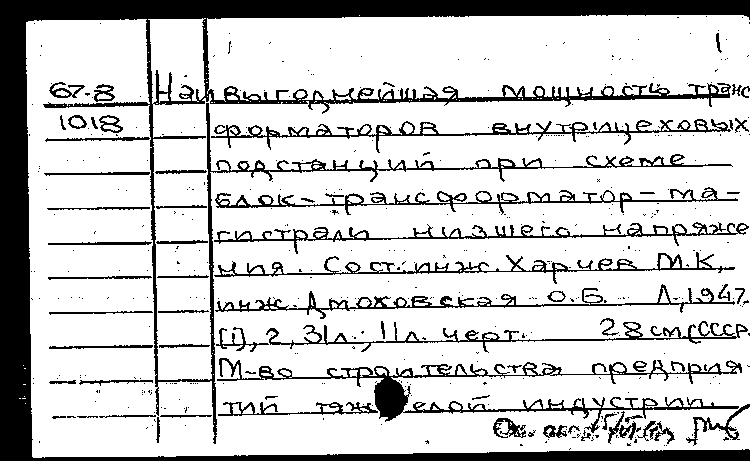 67-8 Наивыгоднейшая мощность транс
1018 форматоров внутрицеховых
подстанций при схеме
блок-трансформатор-ма-
гистрали низшего напряже
ния. Сост.: инж. Харчев М.К,
инж. Дмоховская О.Б. Л, 1947.
[1], 2, 31л.; 11л. черт. 28см (СССР.
М-во строительства предприя-
тий тяжелой индустрии.